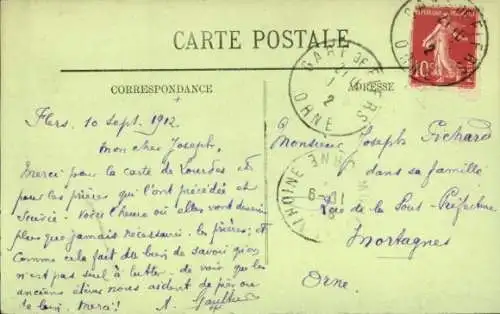 CARTE POSTALE
CORRESPONDANCE
ADRESSE
GARE DE FLERS
ORNE
Flers, 10 sept. 1912
Mon cher Joseph,
Merci pour la carte de Lourdes et
pour les prières qui l'ont précédée et
suivie. Voici l'heure où elles vont devenir
plus que jamais nécessaires. les prières; et
comme cela fait du bien de savoir qu'on
n'est pas seul à lutter, de voir que les
anciens élèves nous aident de près ou
de loin. Merci! A. Gautier
Monsieur Joseph Pichard
dans sa famille
Rue de la Sous-Préfecture
Mortagne
Orne.